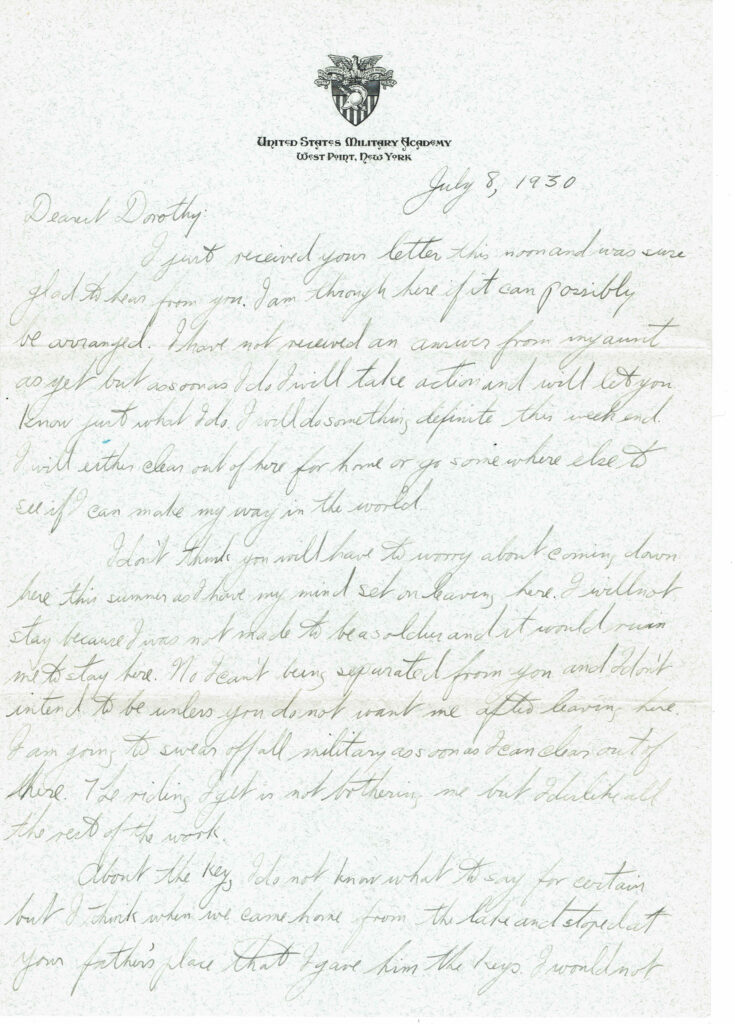 United States Military Academy
West Point, New York
July 8, 1930
Dearest Dorothy:
I just received your letter this noon and was sure
glad to hear from you. I am through here if it can possibly
be arranged. I have not received an answer from my aunt
as yet but as soon as I do I will take action and will let you
know just what I do. I will do something definite this week end.
I will either clear out of here for home or go some where else to
see if I can make my way in the world.
I don't think you will have to worry about coming down
here this summer as I have my mind set on leaving here. I will not
stay because I was not made to be a soldier and it would ruin
me to stay here. No I can't being separated from you and I don't
intend to be unless you do not want me after leaving here.
I am going to swear off all military as soon as I can clear out of
there. The riding I get is not bothering me but I dislike all
the rest of the work.
About the key, I do not know what to say for certain
but I think when we came home from the lake and stoped at
your father's place that I gave him the keys. I would not